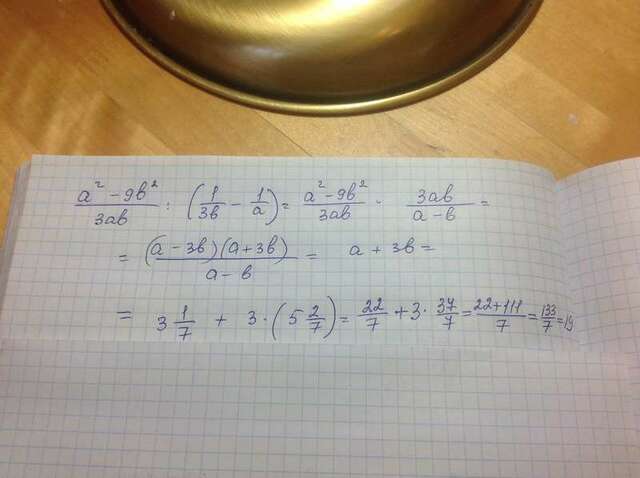 (a² - 9b²)/(3ab) : (1/(3b) - 1/a) = (a² - 9b²)/(3ab) · (3ab)/(a - b) =
= ((a - 3b)(a + 3b))/(a - b) = a + 3b =
= 3 1/7 + 3 · (5 2/7) = 22/7 + 3 · 37/7 = (22+111)/7 = 133/7 = 19